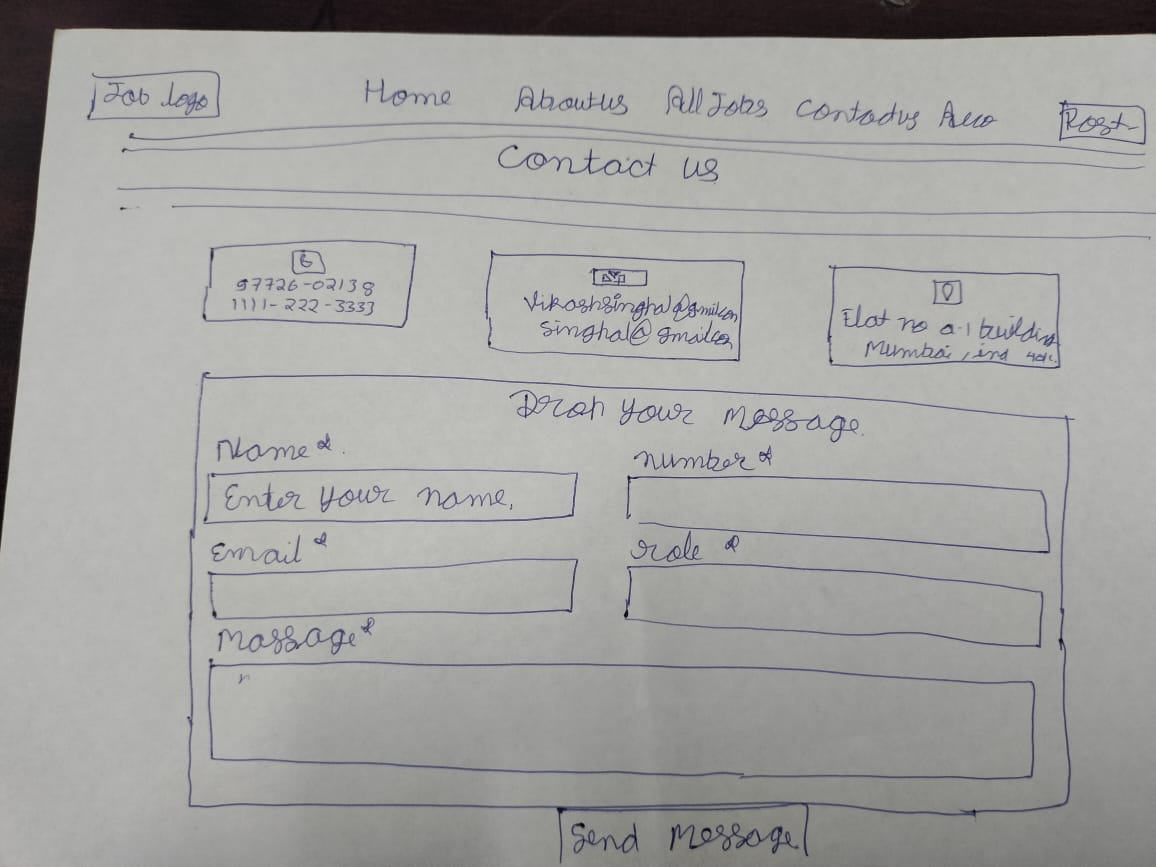 Job logo Home Aboutus All Jobs Contactus Post
Contact us
97726-02138
1111-222-3333
Vikashsingha@gmilcon
Singhal@gmailcom
Flat no a-1 building
Mumbai, ind
Drop your message
Name*
Number*
Enter your name.
Email*
role*
Massage*
Send Message